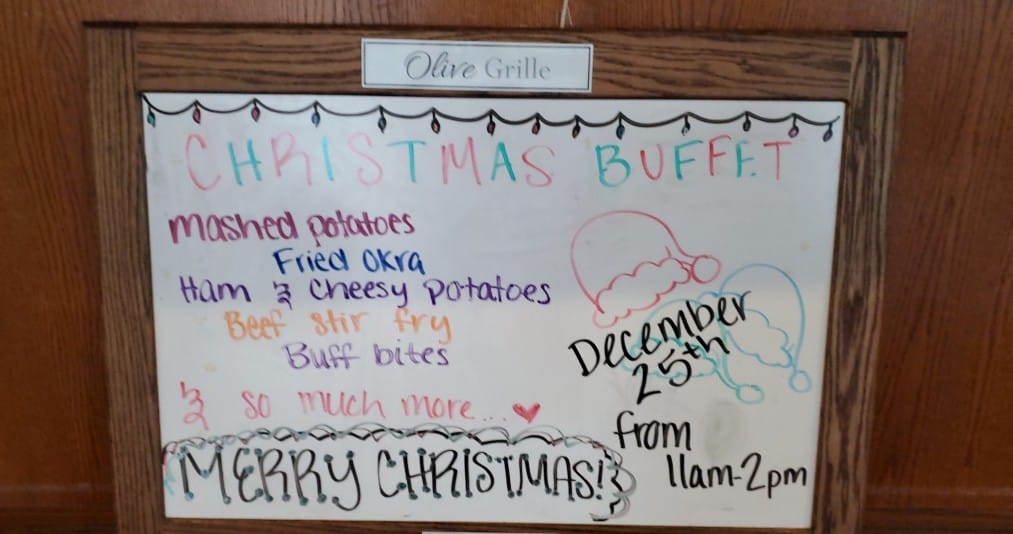 Olive Grille
CHRISTMAS BUFFET
Mashed potatoes
Fried Okra
Ham & Cheesy potatoes
Beef stir fry
Buff bites
& so much more... ♥
December
25th
from
11am-2pm
MERRY CHRISTMAS!